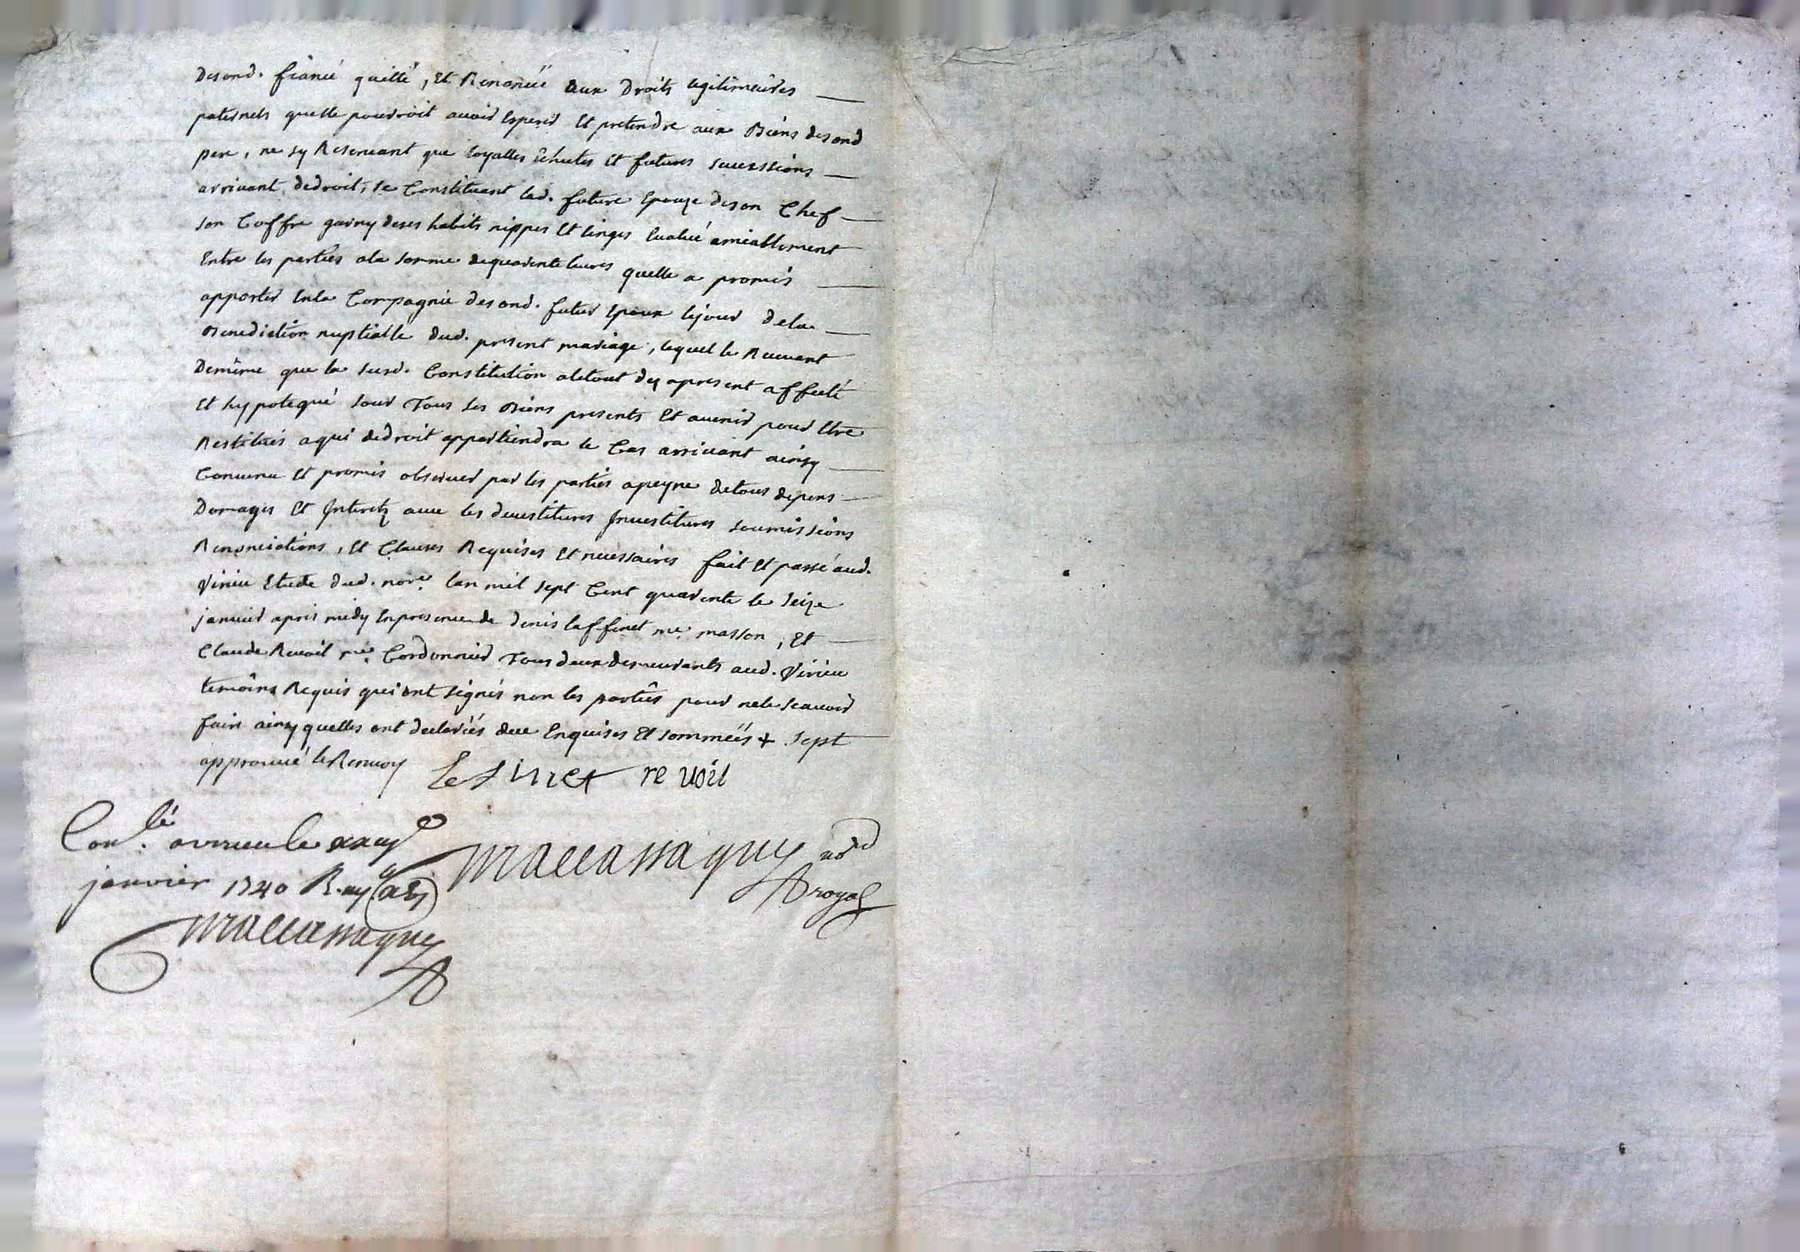 desond. fiancé quitté, Et Renoncé aux Droits legitimaires
paternels quelle pourroit avoir Esperer Et pretendre aux Biens desond
pere, ne sy Reservant que loyalles Echutes Et futures successions
arrivant dedroit, se Constituant lad. future Epouze deson Chef
son Coffre garny deses habits nippes Et linges Evalué amiablement
Entre les parties ala somme dequarente livres quelle a promis
apporter Enla Compagnie desond. futur Epoux lejour dela
Benediction nuptialle dud. present mariage, lequel le Recevant
Demême que la susd. Constitution aletout des apresent affecté
Et hypotequé sour Tous ses Biens presents Et avenir pour Etre
Restitués aqui dedroit appartiendra le Cas arrivant ainsy
Convenu Et promis observer par les parties apeyne detous depens
Domages Et Interetz avec les devestitures Investitures soumissions
Renonciations, Et Clauses Requises Et necessaires fait Et passé aud.
Virieu Etude dud. nore. lan mil sept Cent quarente le seize
janvier apres midy Enpresence de denis laffinet me. masson, Et
Claude Revoil me. Cordonnier Tous deux demeurants aud. Virieu
temoins Requis qui ont signés non les parties pour nele scavoir
faire ainsy quelles ont declarées deue Enquises Et sommeés + sept
approuvé le Renvoy
re voil
Con.lé avirieu le
janvier 1740
Maccassaguy
royal
Maccassaguy